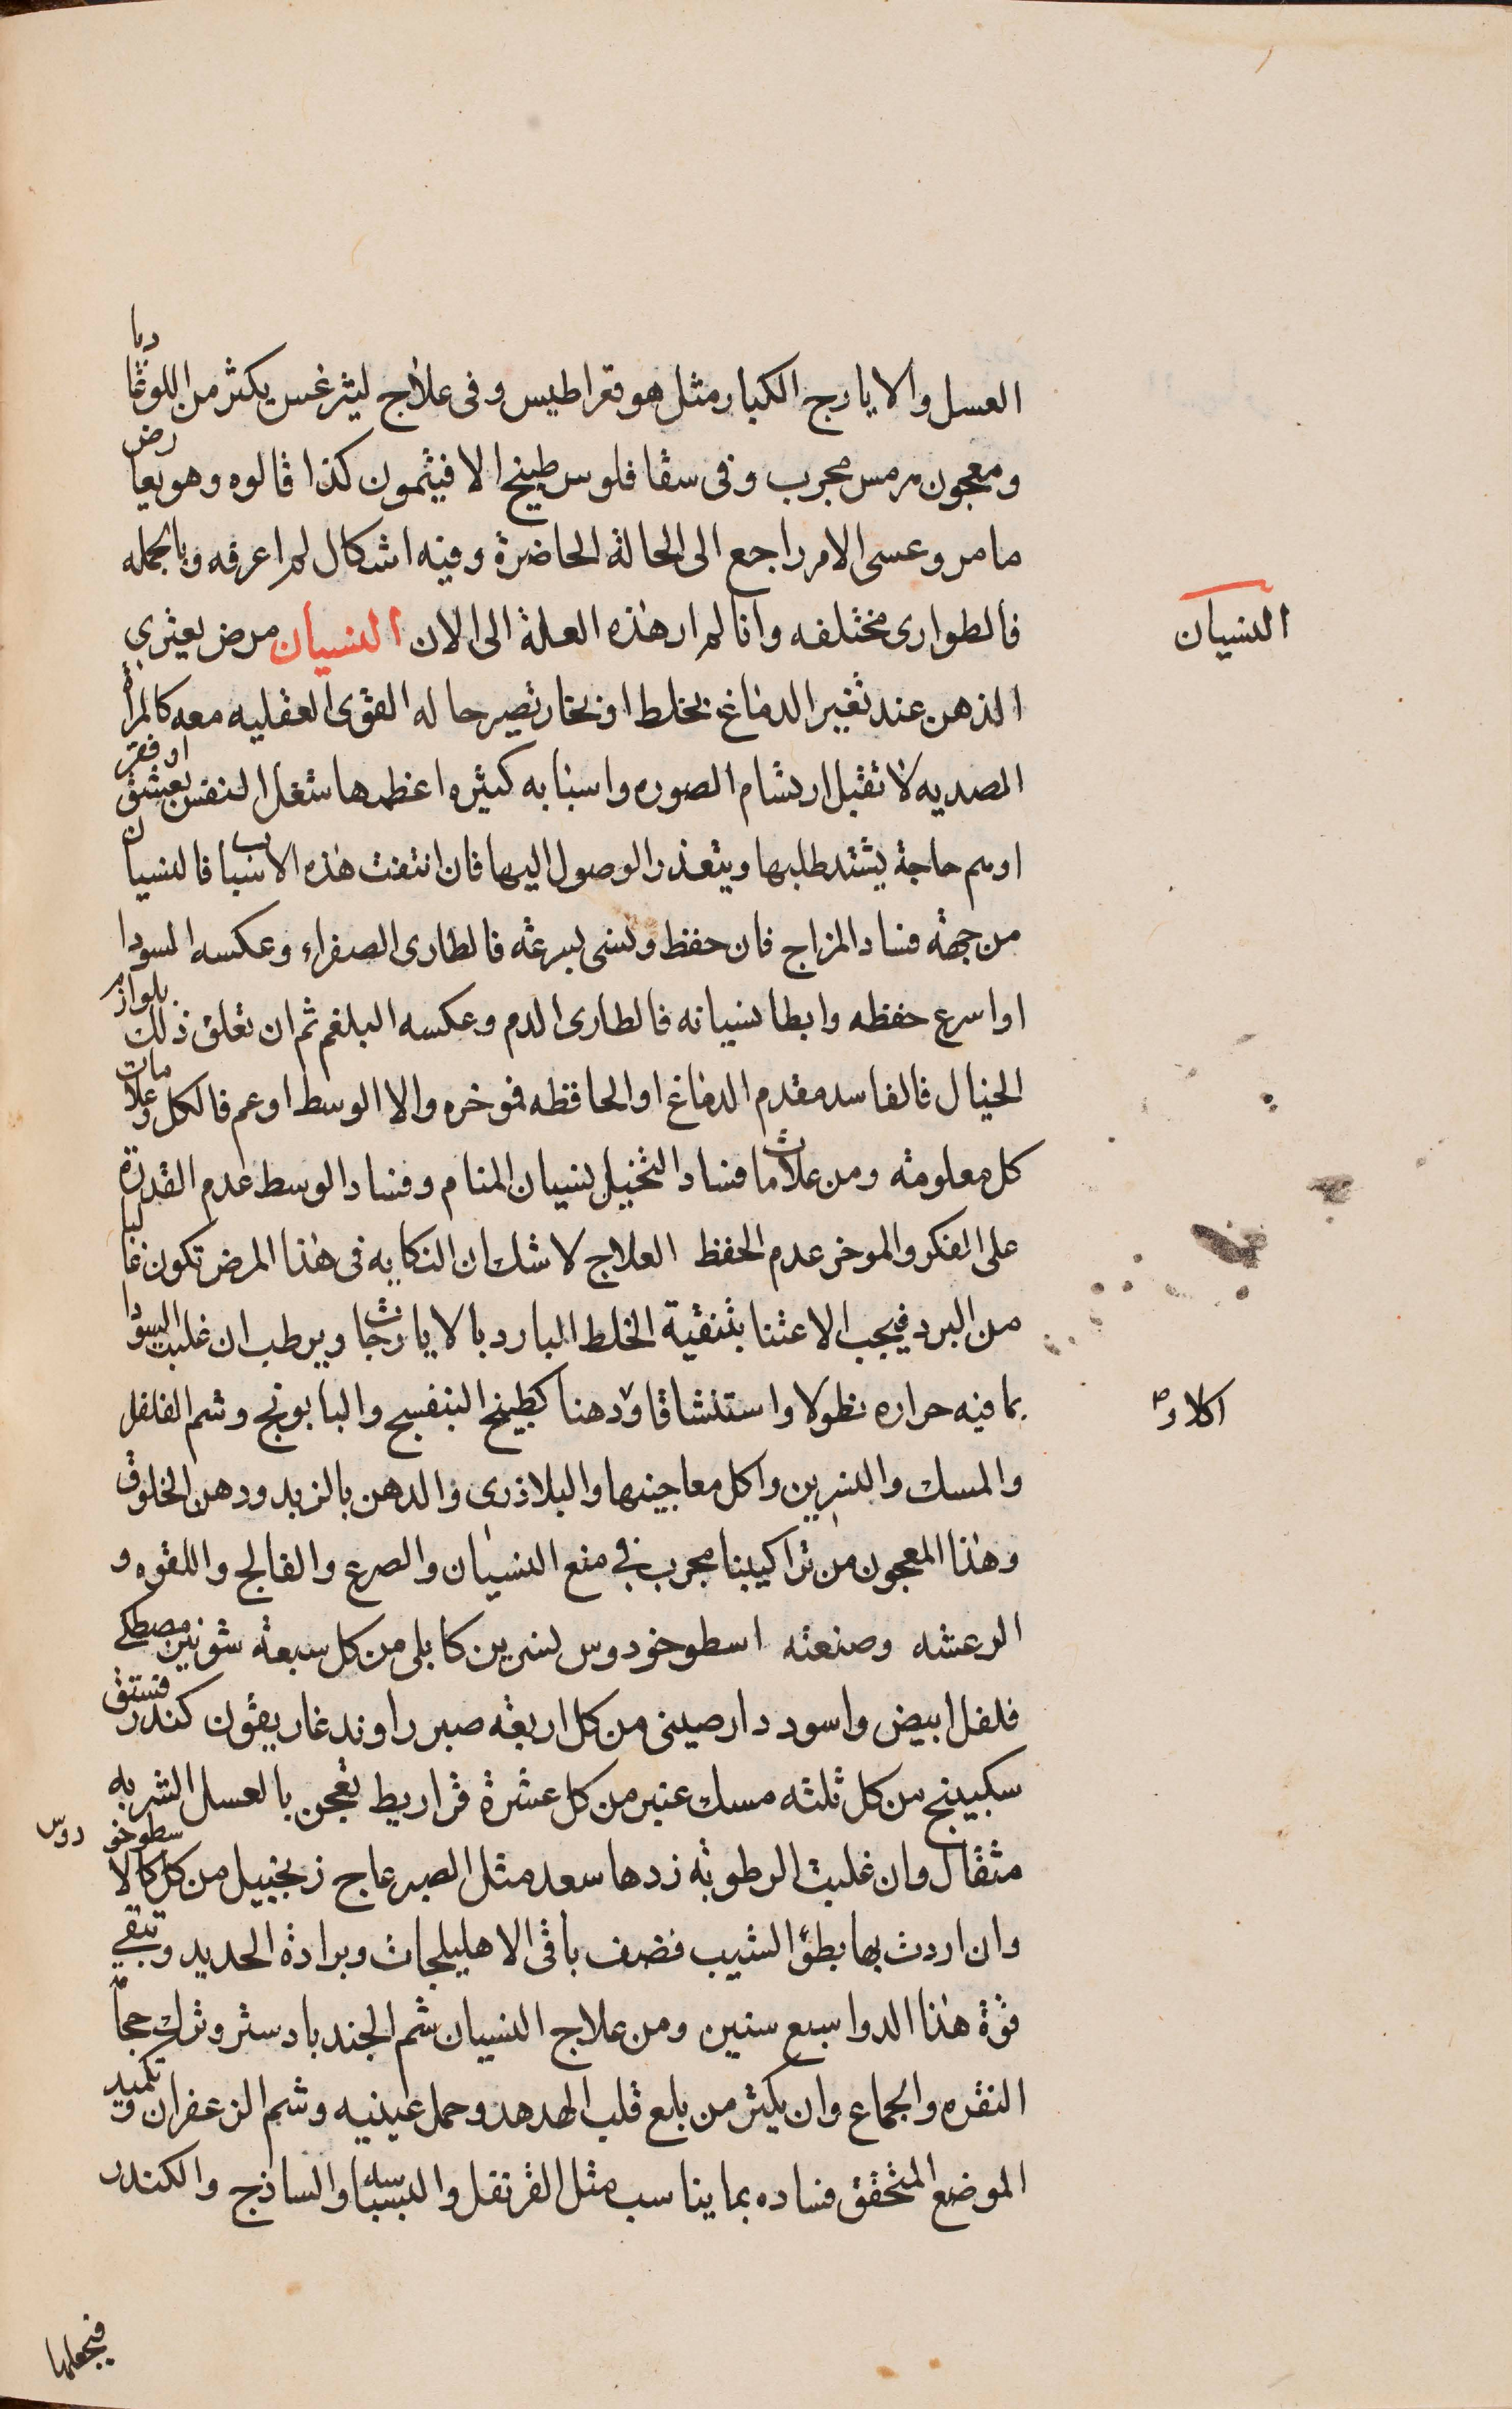 العسل والايارج الكبار مثل هو قراطيس وفى علاج ليثرغس يكثر من اللوغاديا
ومعجون هرمس مجرب وفى سقاقلوس طبيخ الافيثمون كذا قالوه وهو يعارض
مامر وعسى الامر راجع الى الحالة الحاضرة وفيه اشكال لم اعرفه وبالجمله
فالطوارى مختلفه وانا لم ار هذه العلة الى الان النسيان مرض يعترى
النسيان
الذهن عند تغير الدماغ بخلط او بخار تصير حاله القوى العقليه معه كالمرأة
المصديه لا تقبل ارتسام الصوره واسبابه كثيره اعظمها شغل النفس بعشق او فقر
او هم حاجة يشتد طلبها ويتعذر الوصول اليها فان انتفت هذه الاسباب فالنسيان
من جهة فساد المزاج فان حفظ ونسى بسرعة فالطارى الصفراء وعكسه السودا
او اسرع حفظه وابطا نسيانه فالطارى الدم وعكسه البلغم ثم ان تعلق ذلك بلوازم
الخيال فالفاسد مقدم الدماغ او الحافظه فموخره والا الوسط او عم فالكل وعلامات
كل معلومة ومن علامات فساد التخيل نسيان المنام وفساد الوسط عدم القدرة
على الفكر والموخر عدم الحفظ العلاج لا شك ان النكايه فى هذا المرض تكون غالبا
من البرد فيجب الاعتنا بتنقية الخلط البارد بالايارجات ويرطب ان غلبت السودا
بما فيه حراره نطولا واستنشاقا ودهنا كطبيخ البنفسج والبابونج وشم الفلفل
اكلا و
والمسك والنسرين واكل معاجينها والبلاذرى والدهن بالزبد ودهن الخلوق
وهذا المعجون من تراكيبنا مجرب فى منع النسيان والصرع والفالج واللقوه و
الرعشه وصنعته اسطوخودوس نسرين كابلى من كل سبعة شونيز مصطكى
فلفل ابيض واسود دارصينى من كل اربعة صبر راوند غاريقون كندر فستق
سكبينج من كل ثلثه مسك عنبر من كل عشرة قراريط تعجن بالعسل الشربه
مثقال وان غلبت الرطوبة زدها سعد مثل الصبر عاج زنجبيل من كل كالاسطوخودوس
وان اردت بها بطؤ الشيب فضف باقى الاهليلجات وبرادة الحديد وتبقى
قوة هذا الدوا سبع سنين ومن علاج النسيان شم الجندبادستر وترك حجامة
النقره والجماع وان يكثر من بلع قلب الهدهد وحمل عينيه وشم الزعفران وتكميد
الموضع المتحقق فساده بما يناسب مثل القرنفل والبسباسه والساذج والكندر
فيجعلها